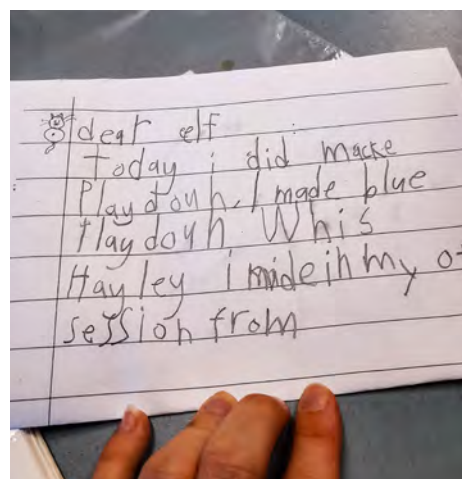 dear elf
Today i did macke
Playdouh. I made blue
Playdouh Whis
Hayley i mide in my o
session from